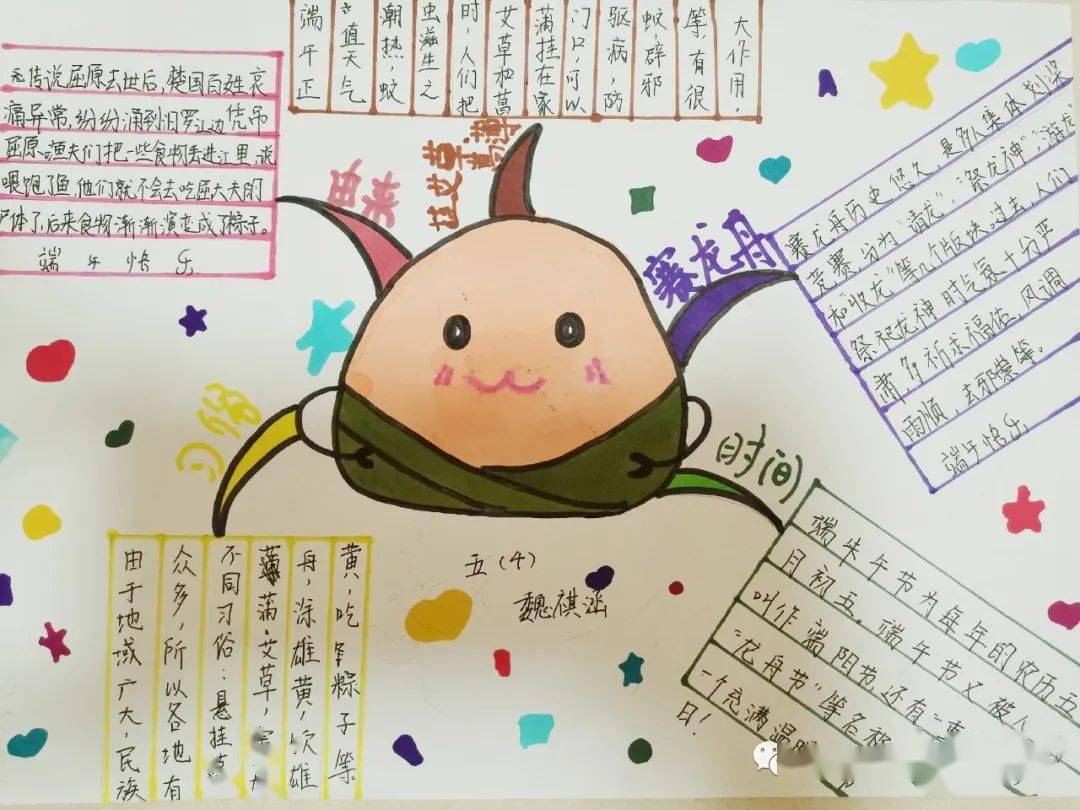 端午正
值天气
潮热，蚊
虫滋生之
时，人们把
艾草和菖
蒲挂在家
门口，可以
驱病，防
蚊，辟邪
等，有很
大作用。
传说屈原去世后，楚国百姓哀
痛异常，纷纷涌到汨罗江边凭吊
屈原。渔夫们把一些食物丢进江里，说
喂饱了鱼，他们就不会去吃屈大夫的
尸体了，后来食物渐渐演变成了粽子。
端午快乐
由来
挂艾草，菖蒲
赛龙舟
赛龙舟历史悠久，是多人集体划桨
竞赛，分为“请龙”；“祭龙神”；“游龙”
和“收龙”等几个版块。过去，人们
祭祀龙神时气氛十分严
肃，多祈求福佑，风调
雨顺，去邪祟等。
端午快乐
习俗
由于地域广大，民族
众多，所以各地有
不同习俗：悬挂
蒲、艾草，
舟，涂雄黄，饮雄
黄，吃粽子等。
五（4）
魏祺涵
时间
端午节为每年的农历五
月初五。端午节又被人
叫作端阳节，还有“重
“龙舟节”等名称
一个充满温
日！